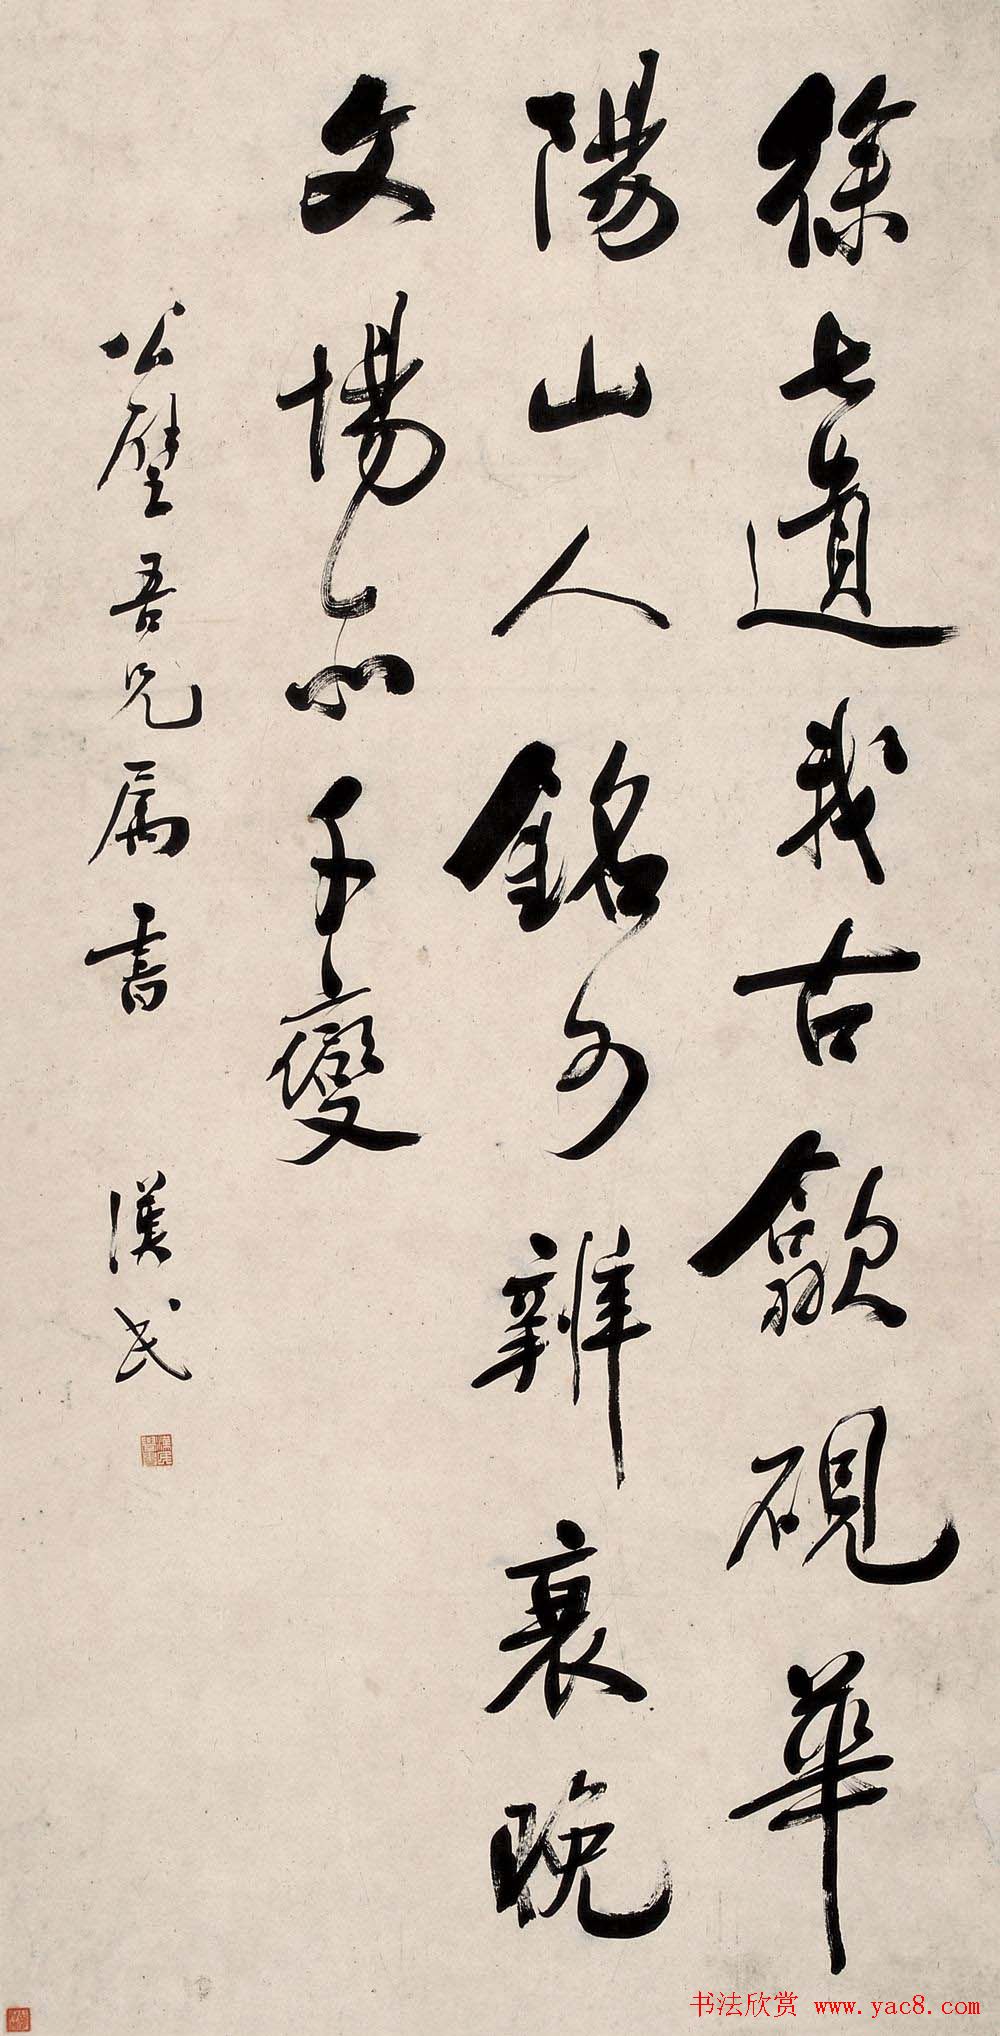 徐七遺我古歙硯華
陽山人銘可辨衰晚
文場亦千變
公璧吾兄屬書
漢民
书法欣赏 www.yac8.com